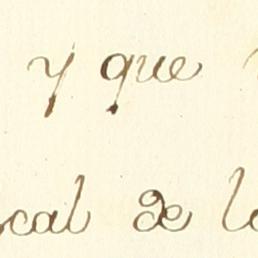 y que
cal de lo